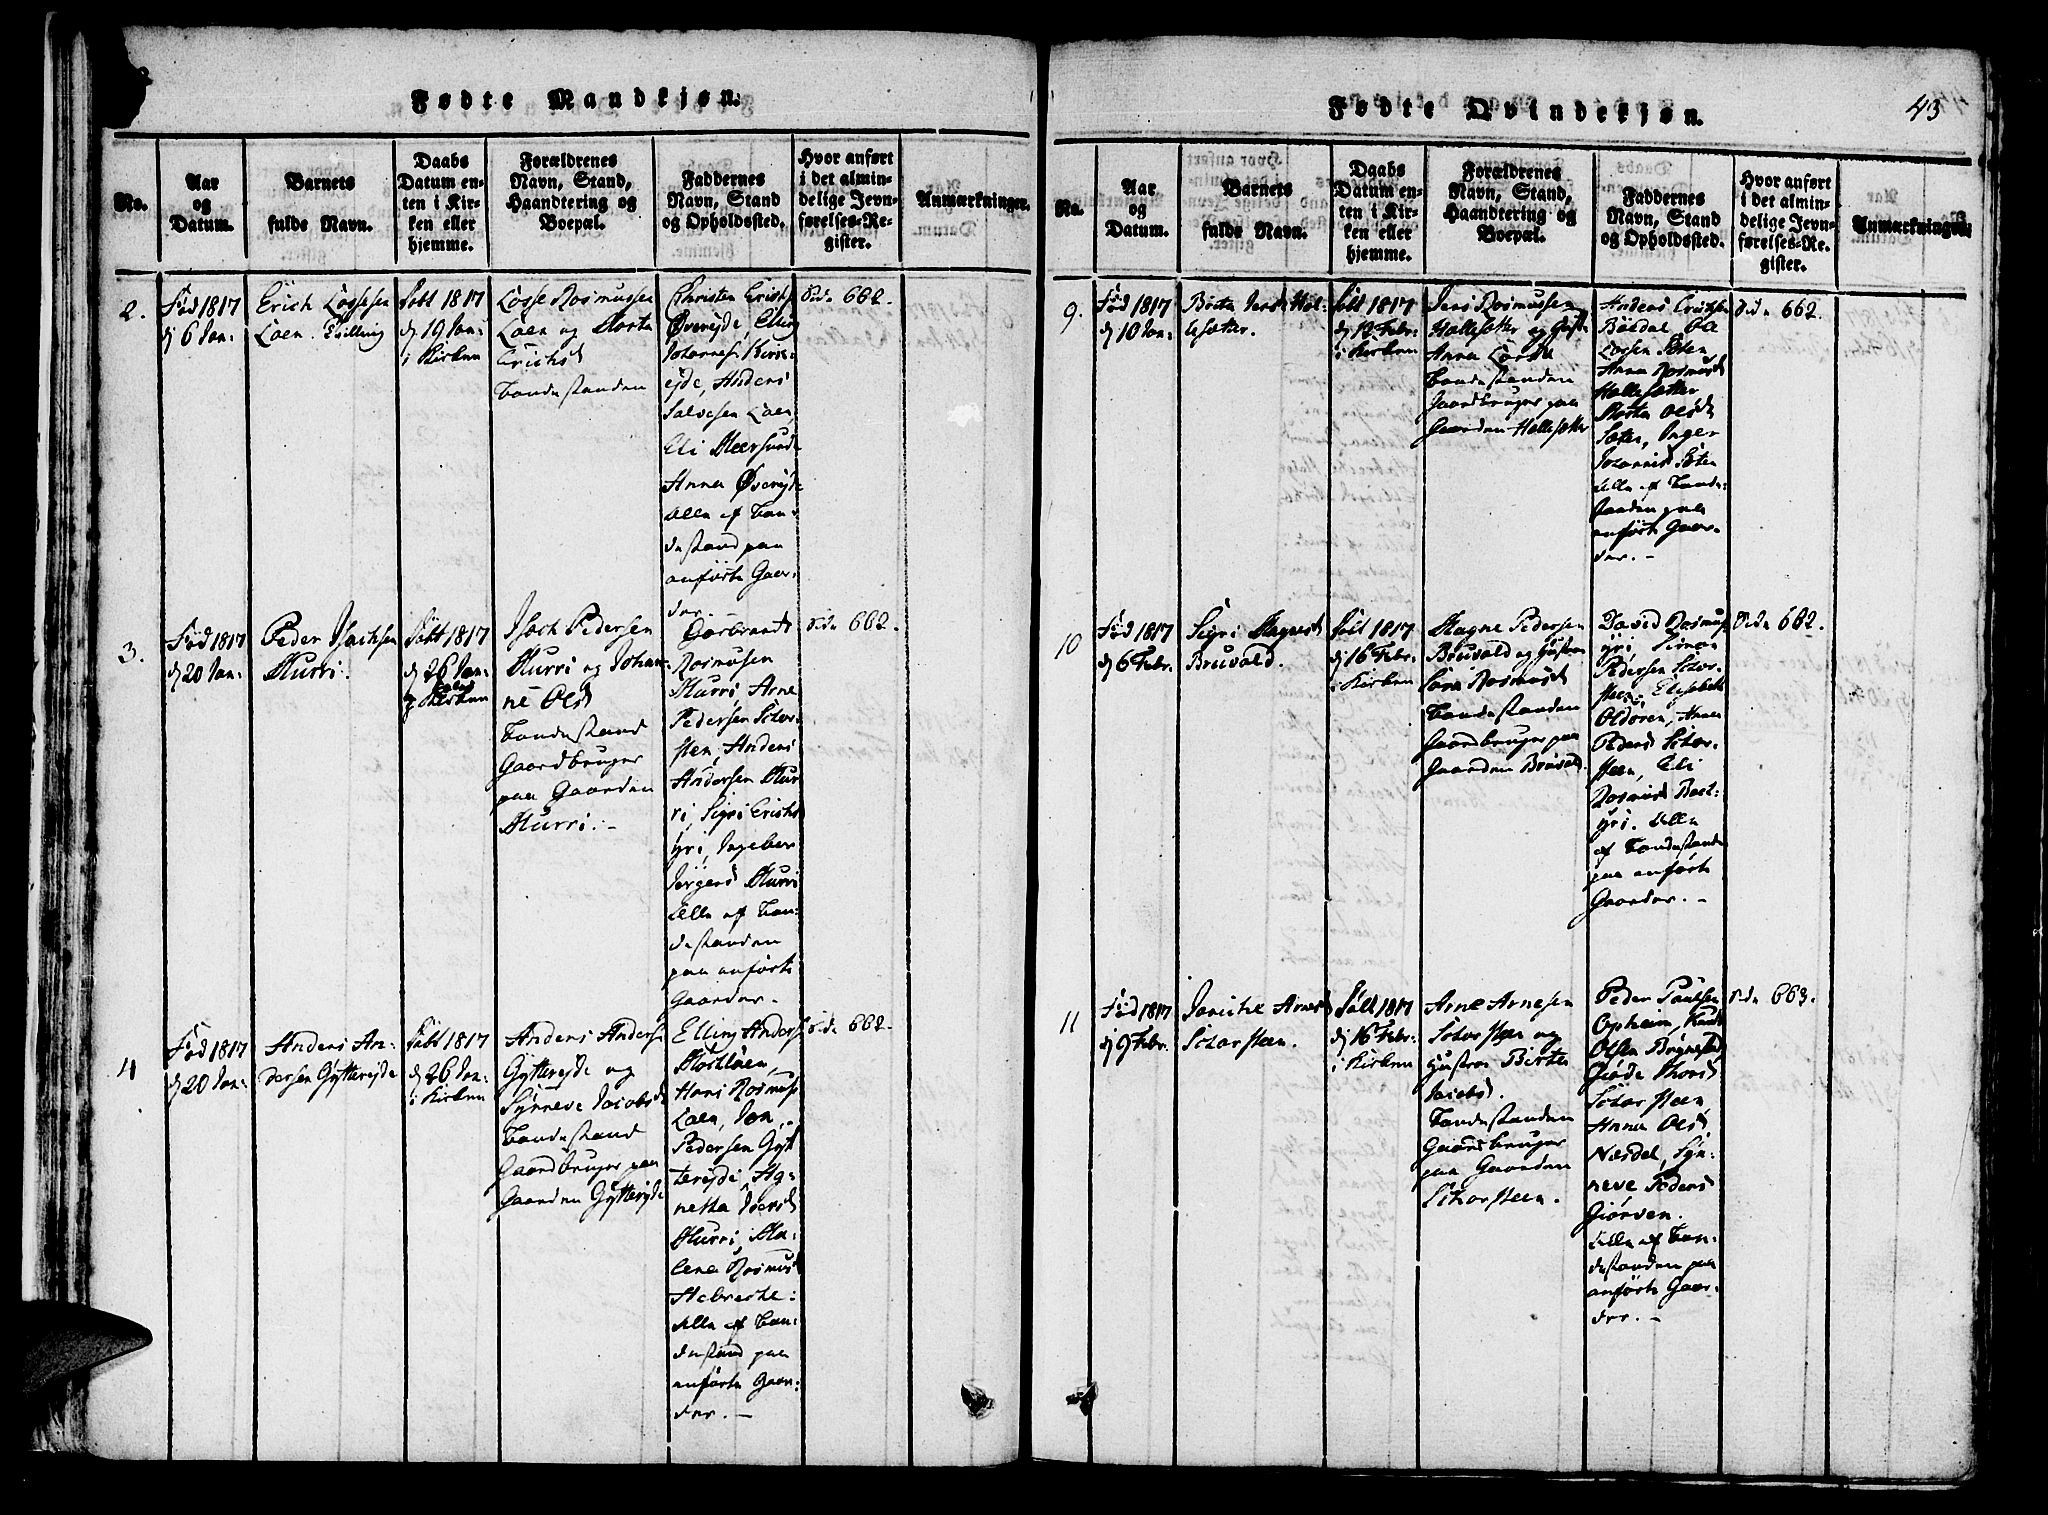 Fødte Mandkjøn.
No.
Aar
og
Datum.
Barnets
fulde Navn.
Daabs
Datum en-
ten i Kir-
ken eller
hjemme.
Forældrenes
Navn, Stand,
Haandtering og
Boepæl.
Faddernes
Navn, Stand
og Opholdssted.
Hvor anført
i det almin-
delige Jevn-
førelses-Re-
gister.
Anmærkninger.
2.
Fød 1817
d 6 Jan:
Erich Lassesen
Loen.
Døbt 1817
d 19 Jan:
i Kirken
Lasse Rasmussen
Loen og Marta
Erichsd
Bondestanden
Christen Erichs
Øvreijde, Elling
Johannes Kirk-
eijde, Anders
Salvesen Loen,
Eli
Anna Øvreijde
Alle af Bon-
destand paa
anførte Gaar-
der
Side 662.
3.
Fød 1817
d 20 Jan:
Peder Isachsen
Murri.
Døbt 1817
d 26 Jan:
Kirken
Isach Pedersen
Murri og Johan-
ne Olsd
Bondestand
Gaardbruger
paa Gaarden
Murri. -
Garbrandt
Rasmusen
Murri Arne
Pedersen Schor-
steen, Anders
Andersen Mur-
ri, Sigri Erichsd
yri, Ingeber
Jørgensd Murri
Alle af Bon-
destanden
paa anførte
Gaarder.
Side 662.
4
Fød 1817
d 20 Jan:
Anders An-
dersen Gytterejde
Døbt 1817
d 26 Jan:
i Kirken
Anders Anders:
Gytterejde og
Synneve Jacobsd
Bondestand
Gaardbruger paa
Gaarden Gytterejde
Elling Anders:
Mostloen,
Hans Rasmus:
Loen, Jon
Pedersen Gyt-
terejde, Ag-
netha Iversd
Murri, Ma-
lena Rasmusd
Hebreche:
Alle af Bon-
destand paa
anførte Gaar-
der. -
Side 662.
Fødte Qvindekjøn.
43
No.
Aar
og
Datum.
Barnets
fulde Navn.
Daabs
Datum en-
ten i Kir-
ken eller
hjemme.
Forældrenes
Navn, Stand,
Haandtering og
Boepæl.
Faddernes
Navn, Stand
og Opholdssted.
Hvor anført
i det almin-
delige Jevn-
førelses-Re-
gister.
Anmærkninger.
9.
Fød 1817
d 10 Jan:
Birta Jensd Hol-
lesæter.
Døbt 1817
d 12 Febr:
i Kirken
Jens Rasmussen
Hollesæter og Gustr
Anna Larsd
Bondestanden
Gaardbruger paa
Gaarden Hollesæter
Anders Erichsen
Bødal, Ole
Larsen Sæten
Anna Rasmusd
Hollesæter
Marta Olsd
Sæten, Inger
Johannisd Sæten
Alle af Bonde-
standen paa
anførte Gaar-
der. -
Side 662.
10
Fød 1817
d 6 Febr:
Sigri Magnesd
Bruvold.
Døbt 1817
d 16 Febr:
i Kirken
Magne Pedersen
Bruvold og Gustru
Sara Rasmusd
Bondestanden
Gaardbruger paa
Gaarden Bruvold.
David Rasmus:
yri, Simon
Pedersen Schor-
steen, Elisabeth
Oldøren, Anna
Pedersd Schor-
steen, Eli
Rasmusd Bort-
yri. Alle
af Bondestanden
paa anførte
Gaarder. -
Side 662.
11
Fød 1817
d 9 Febr.
Arnesd
Schorsteen.
Døbt 1817
d 16 Febr:
i Kirken
Arne Arnesen
Schorsteen og
Hustroe Birta
Jacobsd.
Bondestanden
Gaardbruger
paa Gaarden
Schorsteen.
Peder Paulsen
Opheim, Knud
Olsen Brynestad
Giøde Thorsd
Schorsteen
Anna Olsd
Næsdal, Syn-
neve Pedersd
Giørven.
Alle af Bon-
destanden paa
anførte Gaar-
der. -
Side 663.